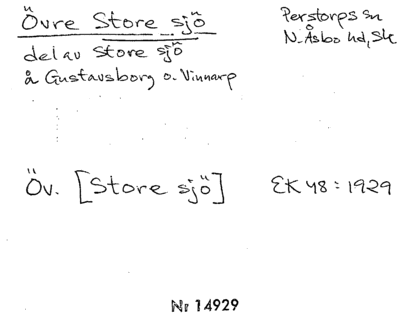 Övre Store sjö
Perstorps sn
N. Åsbo hd, Sk
del av Store sjö
å Gustavsborg o. Vinnarp
Öv. [Store sjö]
EK 48 : 1929
Nr 14929